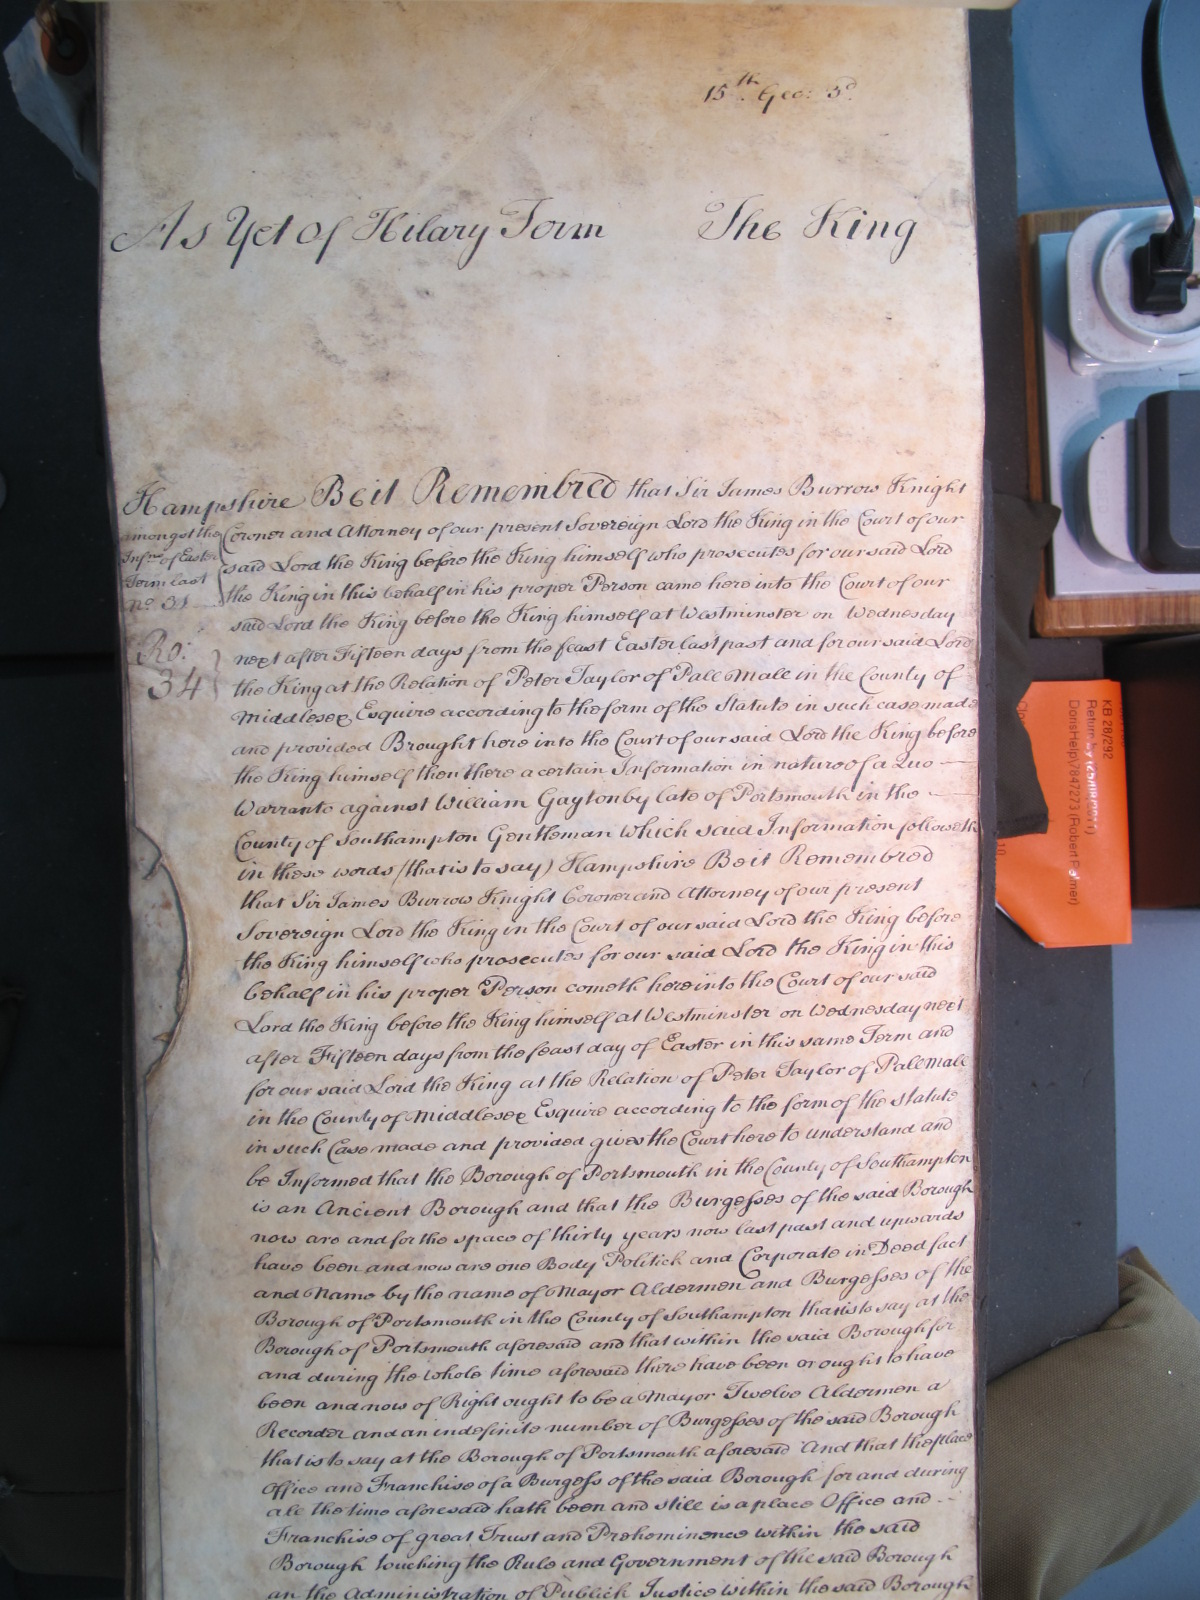 15th Geo: 3d
As Yet of Hilary Term The King
Hampshire Be it Remembred that Sir James Burrow Knight
amongst the
Infns of Easter
Term last
no. 31
Ro:
34
Coroner and Attorney of our present Sovereign Lord the King in the Court of our
said Lord the King before the King himself who prosecutes for our said Lord
the King in this behalf in his proper Person came here into the Court of our
said Lord the King before the King himself at Westminster on Wednesday
next after Fifteen days from the feast Easter last past and for our said Lord
the King at the Relation of Peter Taylor of Pall Mall in the County of
Middlesex Esquire according to the form of the Statute in such case made
and provided Brought here into the Court of our said Lord the King before
the King himself then there a certain Information in nature of a Quo
Warranto against William Gaytonby late of Portsmouth in the
County of Southampton Gentleman which said Information followeth
in these words (that is to say) Hampshire Be it Remembred
that Sir James Burrow Knight Coroner and Attorney of our present
Sovereign Lord the King in the Court of our said Lord the King before
the King himself who prosecutes for our said Lord the King in this
behalf in his proper Person cometh here into the Court of our said
Lord the King before the King himself at Westminster on Wednesday next
after Fifteen days from the feast day of Easter in this same Term and
for our said Lord the King at the Relation of Peter Taylor of Pall Mall
in the County of Middlesex Esquire according to the form of the Statute
in such Case made and provided gives the Court here to understand and
be Informed that the Borough of Portsmouth in the County of Southampton
is an Ancient Borough and that the Burgesses of the said Borough
now are and for the space of thirty years now last past and upwards
have been and now are one Body Politick and Corporate in Deed fact
and Name by the name of Mayor Aldermen and Burgesses of the
Borough of Portsmouth in the County of Southampton that is to say at the
Borough of Portsmouth aforesaid and that within the said Borough for
and during the whole time aforesaid there have been or ought to have
been and now of Right ought to be a Mayor Twelve Aldermen a
Recorder and an indefinite number of Burgesses of the said Borough
that is to say at the Borough of Portsmouth aforesaid And that the place
Office and Franchise of a Burgess of the said Borough for and during
all the time aforesaid hath been and still is a place Office and
Franchise of great Trust and Prehominence within the said
Borough touching the Rule and Government of the said Borough
an the Administration of Publick Justice within the said Borough
KB 28/292
Return by (25/
DorisHelp(V847273 (Robert Palmer)